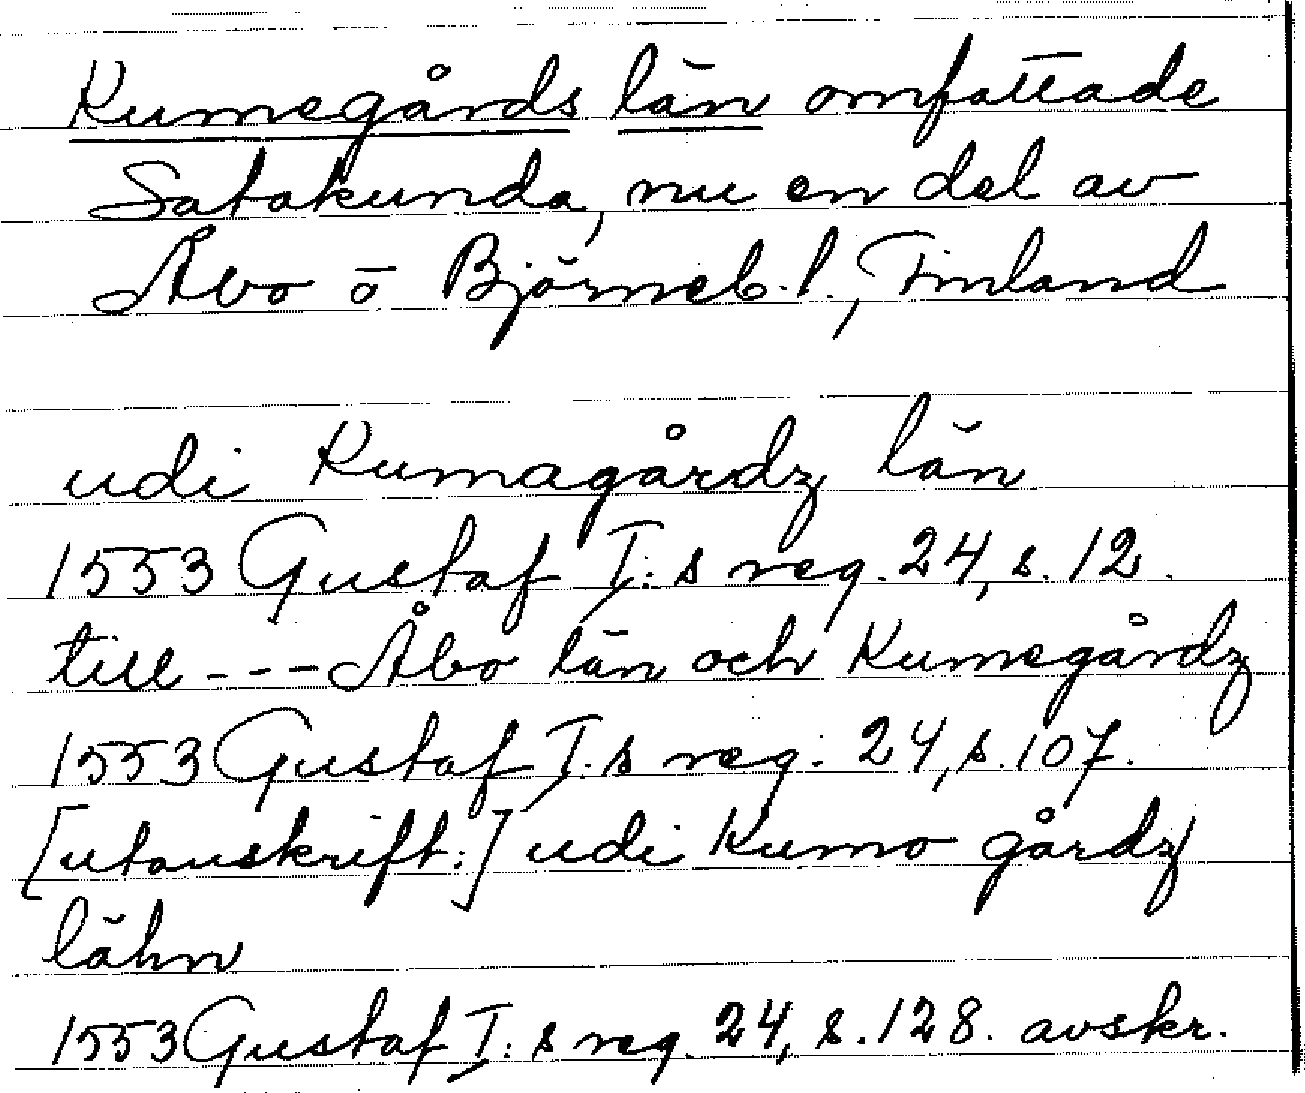 Kumegårds län omfattade
Satakunda, nu en del av
Åbo o Björneb. l., Finland
udi Kumagårdz län
1553 Gustaf I:s reg. 24, s. 12.
till --- Åbo län och Kumegårdz
1553 Gustaf I:s reg. 24, s. 107.
[utanskrift:] udi Kumo gårdz
lähn
1553 Gustaf I:s reg. 24, s. 128. avskr.